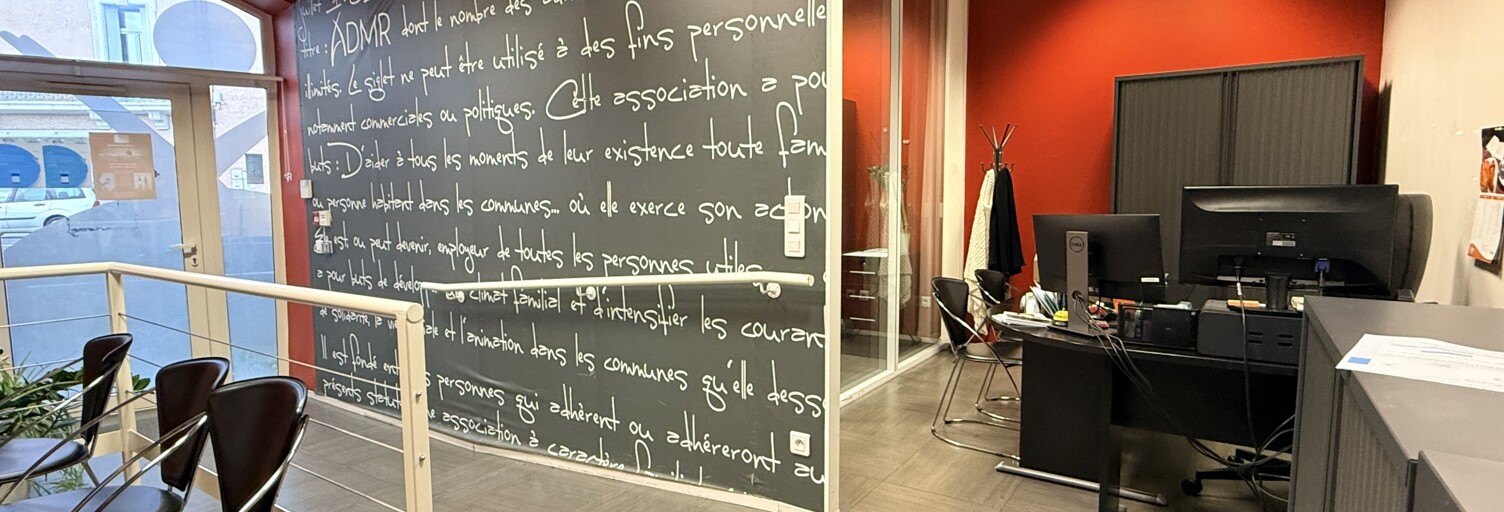 titre : ADMR dont le nombre des
illimités. Le sigle ne peut être utilisé à des fins personnelle
notamment commerciales ou politiques. Cette association a pou
buts : D'aider à tous les moments de leur existence toute fam
ou personne habitant dans les communes... où elle exerce son action
est ou peut devenir, employeur de toutes les personnes utiles
a pour buts de climat familial et d'intensifier les courant
de solidarité, la et l'animation dans les communes qu'elle dess
Il est fondé personnes qui adhèrent ou adhéreront au
présents statuts association à caractère
DELL